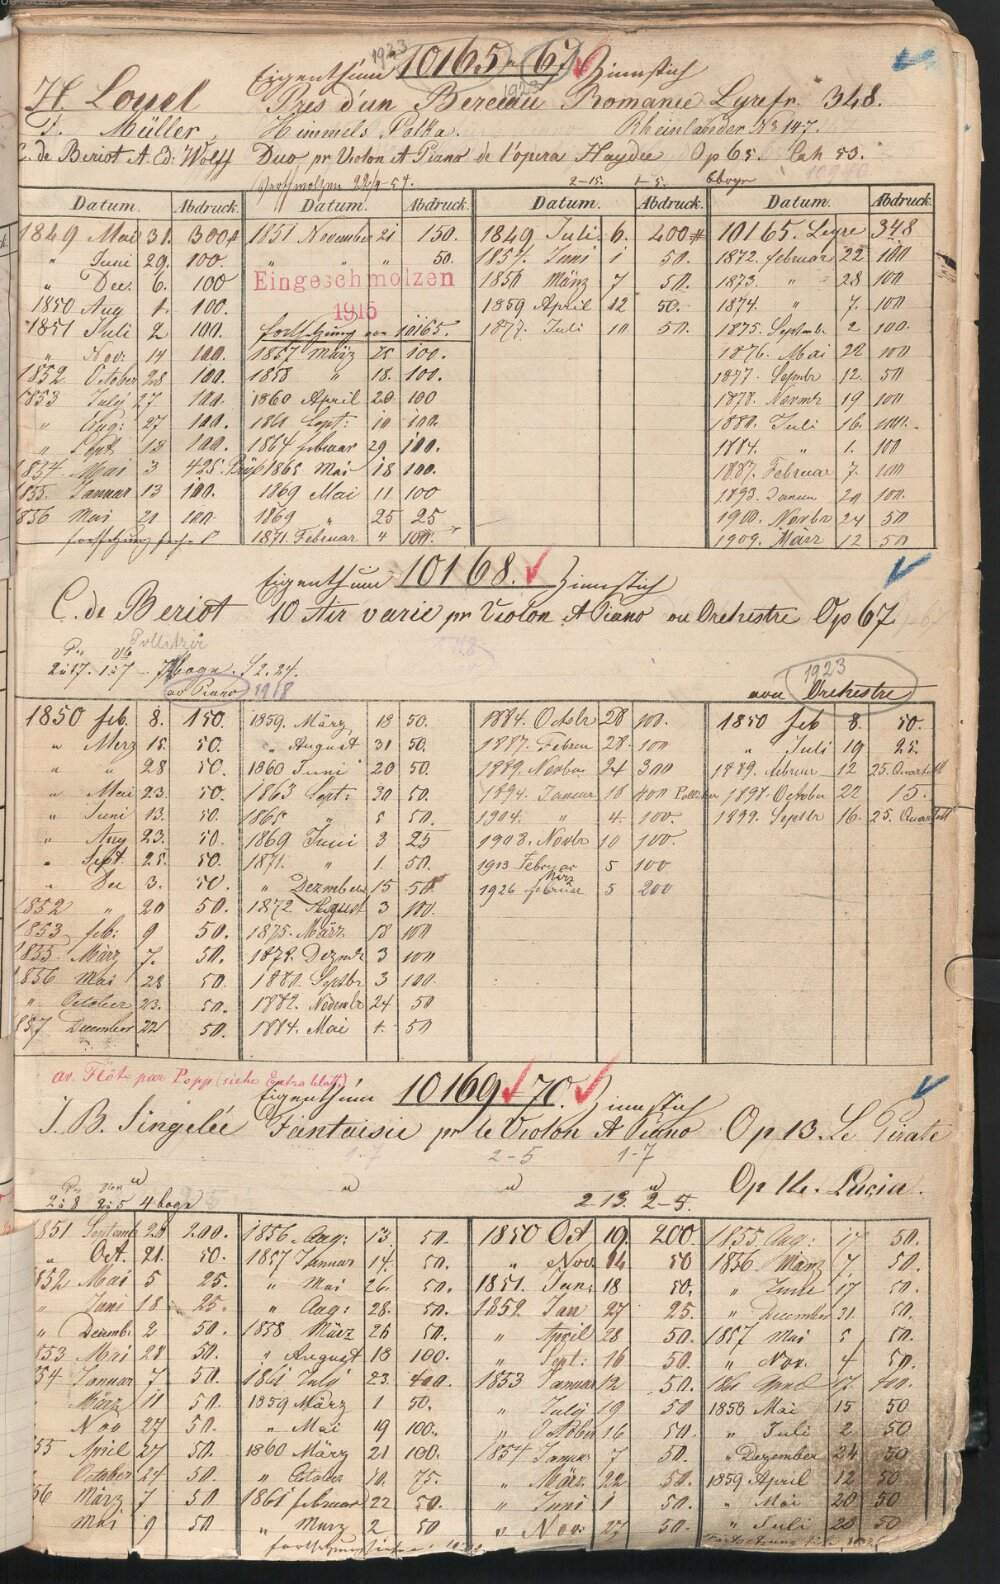 1923
Eigenthum 10165 - 67 Zinnstich
1923
H. Louel Pres d'un Berceau Romance Lyre fr. 348.
F. Müller, Himmels Polka. Rheinländer No 147.
C. de Beriot & Ed: Wolff Duo pr Violon & Piano de l'opera Haydee Op 65. Cah 53.
Verschmolzen 22/9-54. 2-15. 1-5.
Datum. Abdruck. Datum. Abdruck. Datum. Abdruck. Datum. Abdruck.
1849 Mai 31. 300 1851 November 21 150. 1849 Juli. 6. 200 10165 Lyre 348
" Juni 29. 100. " " " 50. 1857. Juni 1 50. 1872. Februar 22 100
" Dec. 6. 100 Eingeschmolzen 1856 März 7 50. 1873. " 28 100
1850 Aug 1. 100. 1915 1859 April 12 50. 1874. " 7. 100
1851 Juli 2 100. Fortsetzung von 10165. 1877. Juli 10 50. 1875. Septmbr 2 100.
" Nov: 14 100. 1857 März 25 100. 1876. Mai 22 100
1852 October 28 100. 1858 " 18. 100. 1877. Septmbr 12. 50
1853 July 27 100 1860 April 20 100 1878. Novmbr 19 100
" Aug: 27 100. 1861 Sept: 10 100. 1880. Juli 16. 100.
" Sept 13 100. 1864 Februar 29 100. 1884. " 1. 100
1854. Mai 3 425. 1865 Mai 18 100. 1887. Februar 7. 100
1855. Januar 13 100. 1869 Mai 11 100 1893. Januar 20 100.
1856 Mai 21 100 1869 " 25 25 1900. Novbr 24 50
Fortsetzung 1871. Februar 4 100. 1909. März 12 50
Eigenthum 10168. Zinnstich
C. de Beriot 10 Air varie pr Violon & Piano ou Orchestre Op 67
Pollitzer
2 à 17. 1 à 7 - 7 Bogn.
av Piano 1918 1923 avec Orchestre
1850 feb. 8. 150. 1859. März 18 50. 1884. Octobr 28 100. 1850 feb 8. 50.
" Merz 15. 50. " August 31 50. 1887. Februar 28. 100 " Juli 19 25.
" " 28 50. 1860 Juni 20 50. 1889. Novbr 24 300 1889. Februar 12 25. Quartett
" Mai 23. 50. 1863 Sept: 30 50. 1894. Januar 18 400 1898. October 22 15.
" Juni 13. 50. 1865 " 5 50. 1904. " 4. 100. 1899. Septbr 16. 25. Quartett
" Aug 23. 50. 1869 Juni 3 25 1908. Novbr 10 100.
" Sept. 25. 50. 1871. " 1. 50. 1913 Februar 5 100
" Dec 3. 50. " Dezember 15 50 1926 März Februar 5 200
1852 " 20 50. 1872 August 3 100.
1853 feb: 9 50. 1875. März 18 100
1855. März 7. 50. 1878. Dezmbr 3 100
1856 Mai 28 50. 1880. Septbr 3 100.
" October 23. 50. 1882. Novembr 24 50
1857 December 22 50. 1884. Mai 1. 50
av. Flöte par Popp (siehe Extrablatt.)
Eigenthum 10169 - 70. Zinnstich
J. B. Singelée Fantaisie pr le Violon & Piano Op 13. Le Pirate
1-7 2-5 1-7
" " " Op 12. Lucia.
2 à 8 2 à 5 4 bogn 2-13. 2-5.
1851 Septemb 20 200. 1856 Aug: 13. 50. 1850 Oct 19. 200. 1855. Aug: 17 50.
" Oct. 21. 50. 1857 Januar 14. 50. " Nov. 14 50 1856. März 7. 50.
1852 Mai 5 25. " Mai 26. 50. 1851. Jan: 18 50. " Juni 17 50.
" Juni 18 25. " Aug: 28. 50. 1852 Jan 27 25. " December 31. 50.
" Decemb. 2 50. 1858 März 26 50. " April 28 50. 1857 Mai 5 50.
1853 Mai 28 50. " August 18 100. " Sept: 16 50. " Nov. 4 50.
1854 Januar 7 50. 1861 July 23. 100. 1853 Januar 12 50. 1861 April 17 100.
" März 11 50. 1859 März 1 50. " July 19 50 1858 Mai 15 50
" Nov 27 50. " Mai 19 100. " October 16 50. " Juli 2 50
1855 April 27 50. 1860 März 21 100. 1854 Januar 7 50. " Dezember 24 50
" October 24 50. " October 10. 75. " März 22 50. 1859 April 12 50
1856 März 7 50 1861 Februar 22 50. " Juni 1 50. " Mai 20 50
" Mai 9 50 " Merz 2 50 " Nov: 27 50. " Juli 20 50
Fortsetzung